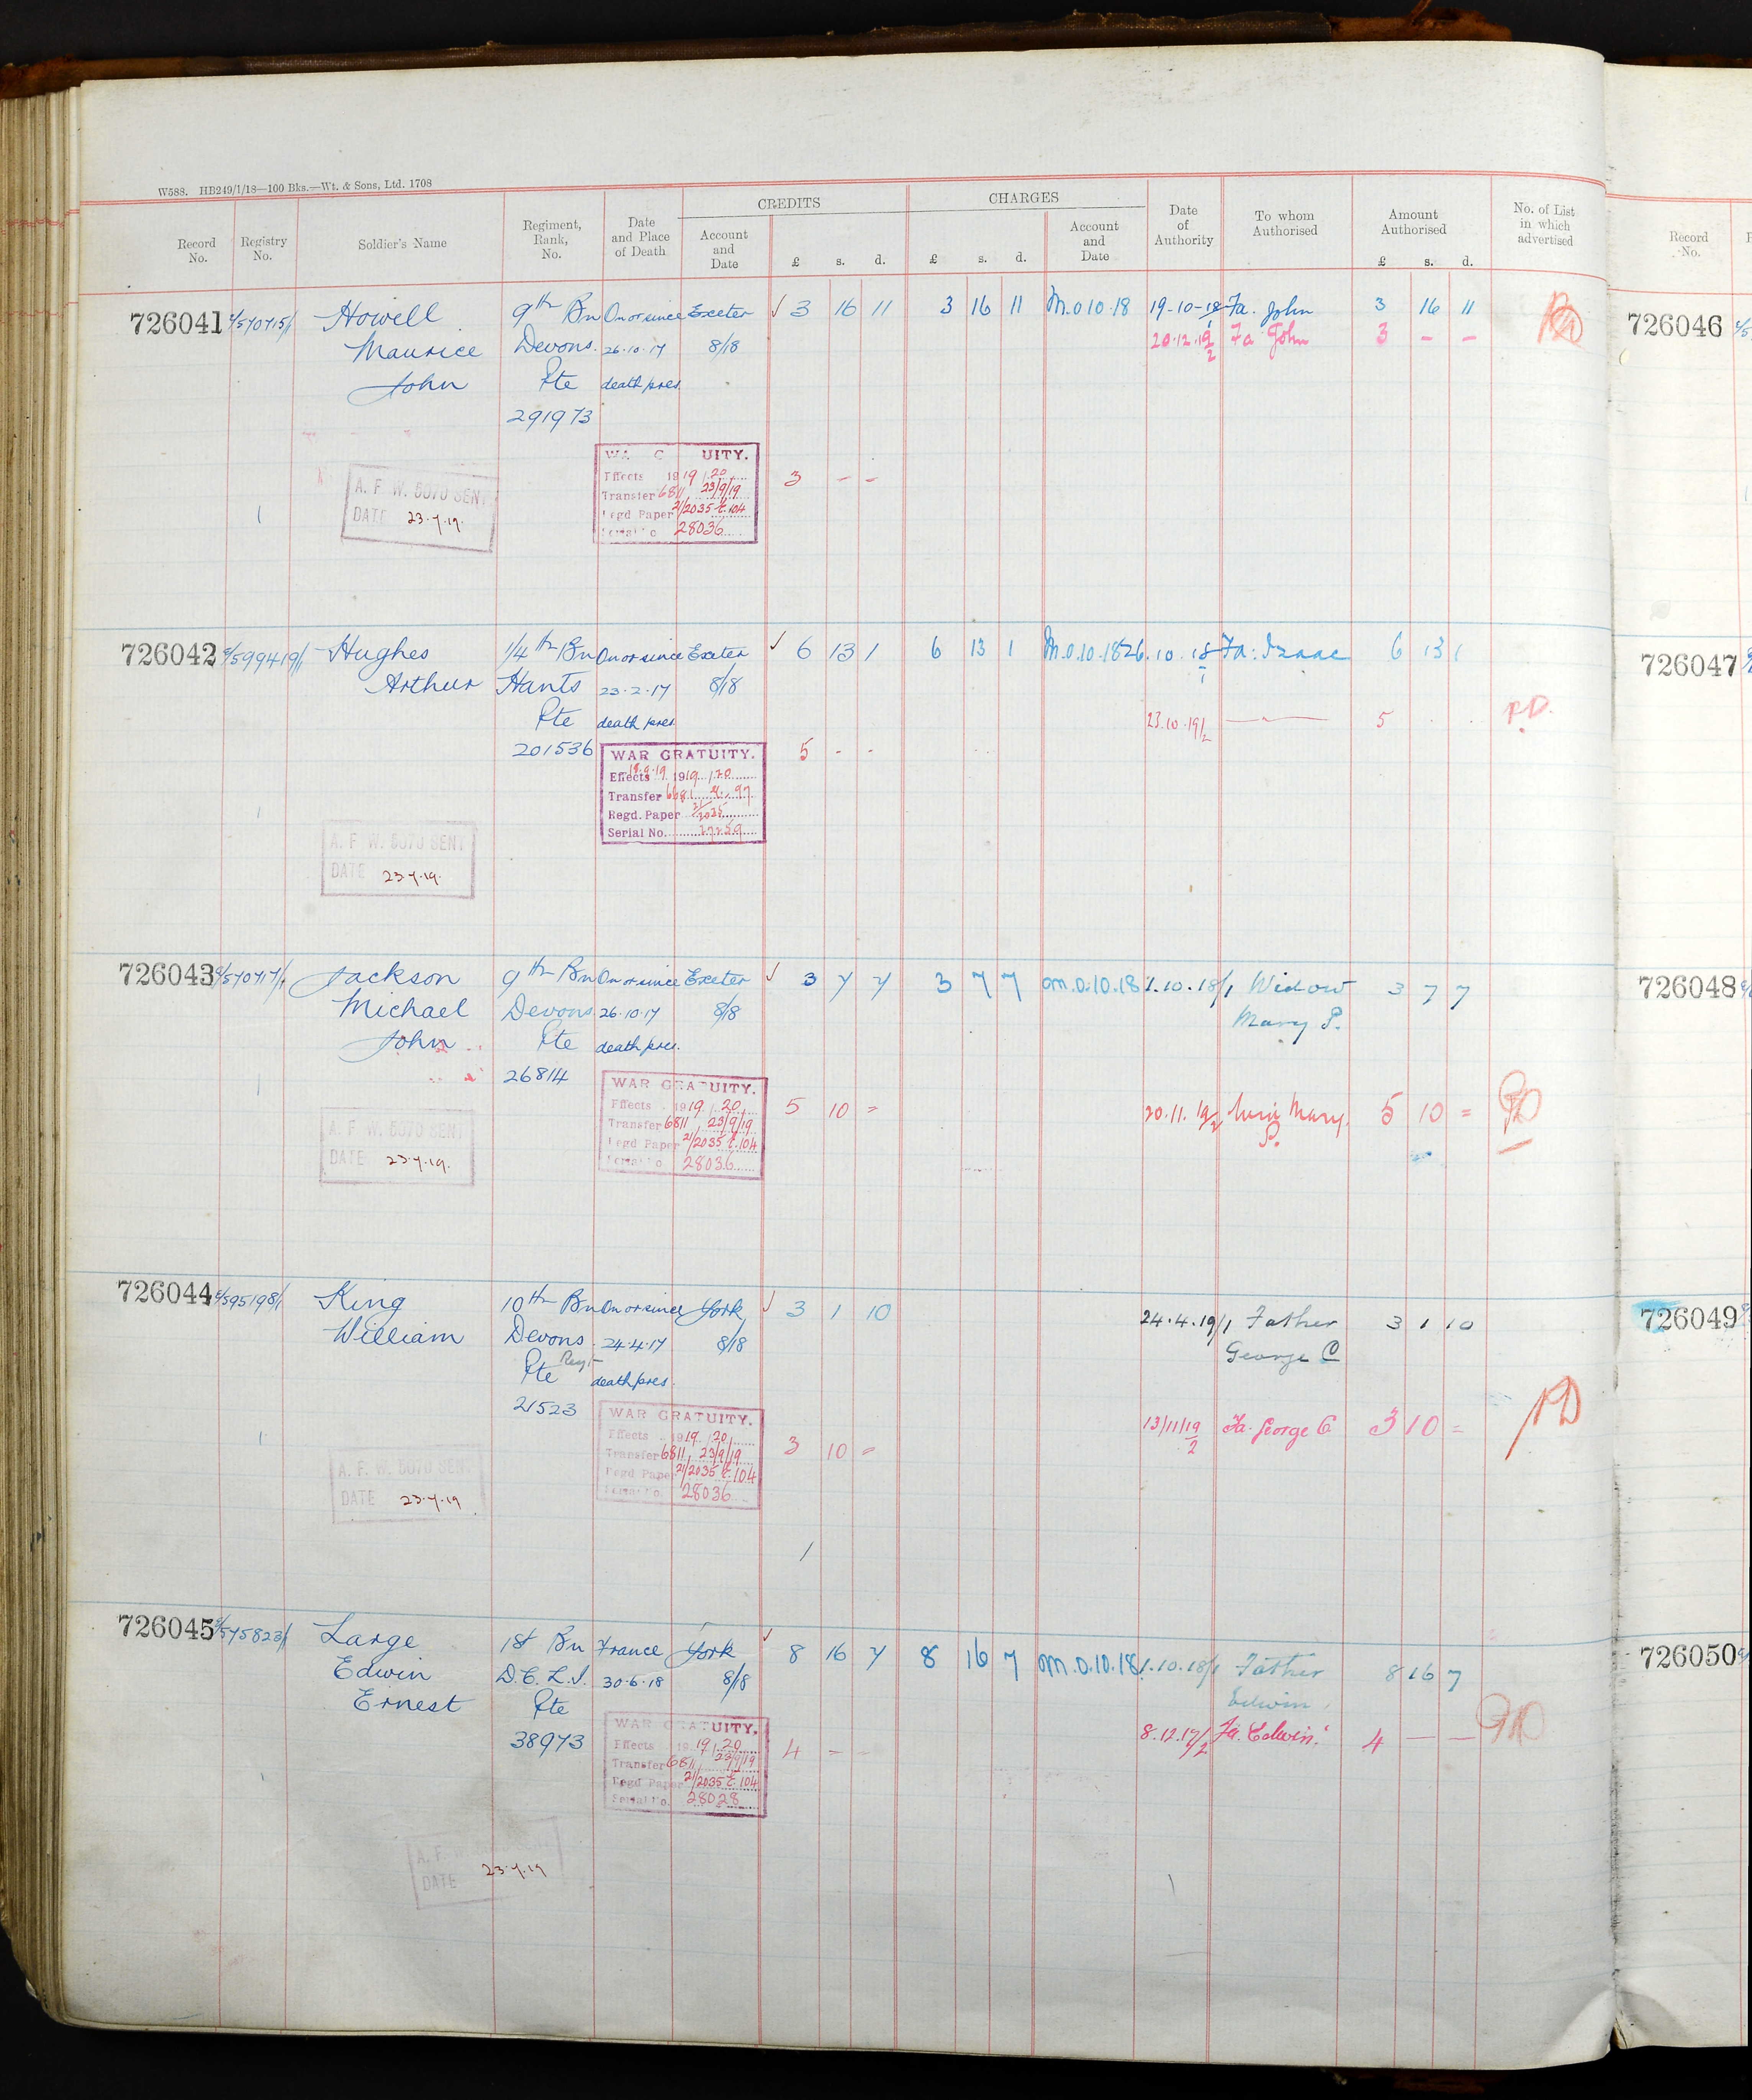 W588. HB249/1/18—100 Bks.—Wt. & Sons, Ltd. 1708
CREDITS CHARGES
Record No. Registry No. Soldier's Name Regiment, Rank, No. Date and Place of Death Account and Date £ s. d. £ s. d. Account and Date Date of Authority To whom Authorised Amount Authorised £ s. d. No. of List in which advertised
Record No.
726041 Howell 9th Bn On or since Exeter 3 16 11 3 16 11 M.O 10.18 19-10-18 Fa. John 3 16 11
Maurice Devons. 26.10.17 8/18 20.12.19/2 Fa John 3 - -
John Pte death pres.
291973
WA G UITY.
Effects 1919/20 3 - -
Transfer 6811 23/9/19
Regd Paper 21/2035 E.104
Serial No 28036
A. F. W. 5070 SENT
DATE 23.7.19.
726042 E/599419/1 Hughes 1/4th Bn On or since Exeter 6 13 1 6 13 1 M.O.10.18 26.10.18/1 Fa: Izaac 6 13 1
Arthur Hants 23.2.17 8/18
Pte death pres 23.10.19/2 5 PD.
201536
WAR GRATUITY. 5 - -
Effects 1919/20
Transfer 6681
Regd. Paper 21/2035
Serial No.
A. F. W. 5070 SENT
DATE 23.7.19.
726043 E/570717/1 Jackson 9th Bn On or since Exeter 3 7 7 3 7 7 M.O.10.18 1.10.18/1 Widow 3 7 7
Michael Devons 26.10.17 8/18 Mary P.
John Pte death pres.
26814
WAR GRATUITY.
Effects 1919/20 5 10 = 20.11.19/2 Mary P. 5 10 =
Transfer 6811 23/9/19
Regd Paper 21/2035 E.104
Serial No 28036
A. F. W. 5070 SENT
DATE 23.7.19.
726044 E/595198/1 King 10th Bn On or since York 3 1 10 24.4.19/1 Father 3 1 10
William Devons. 24.4.17 8/18 George C
Regt
Pte death pres.
21523
WAR GRATUITY. 13/11/19/2 Fa. George C 3 10 = PD
Effects 1919/20 3 10 =
Transfer 6811 23/9/19
Regd Paper 21/2035 E.104
Serial No. 28036
A. F. W. 5070 SENT
DATE 23.7.19
726045 E/575823/1 Large 1st Bn France York 8 16 7 8 16 7 M.O.10.18 1.10.18/1 Father 8 16 7
Edwin D.C.L.I. 30.6.18 8/18 Edwin
Ernest Pte
38973 8.12.19/2 Fa. Edwin. 4 — —
WAR GRATUITY.
Effects 1919/20 4 - -
Transfer 6811 23/9/19
Regd Paper 21/2035 E.104
Serial No. 28028
A. F. W.
DATE 23.7.19
726046
726047
726048
726049
726050